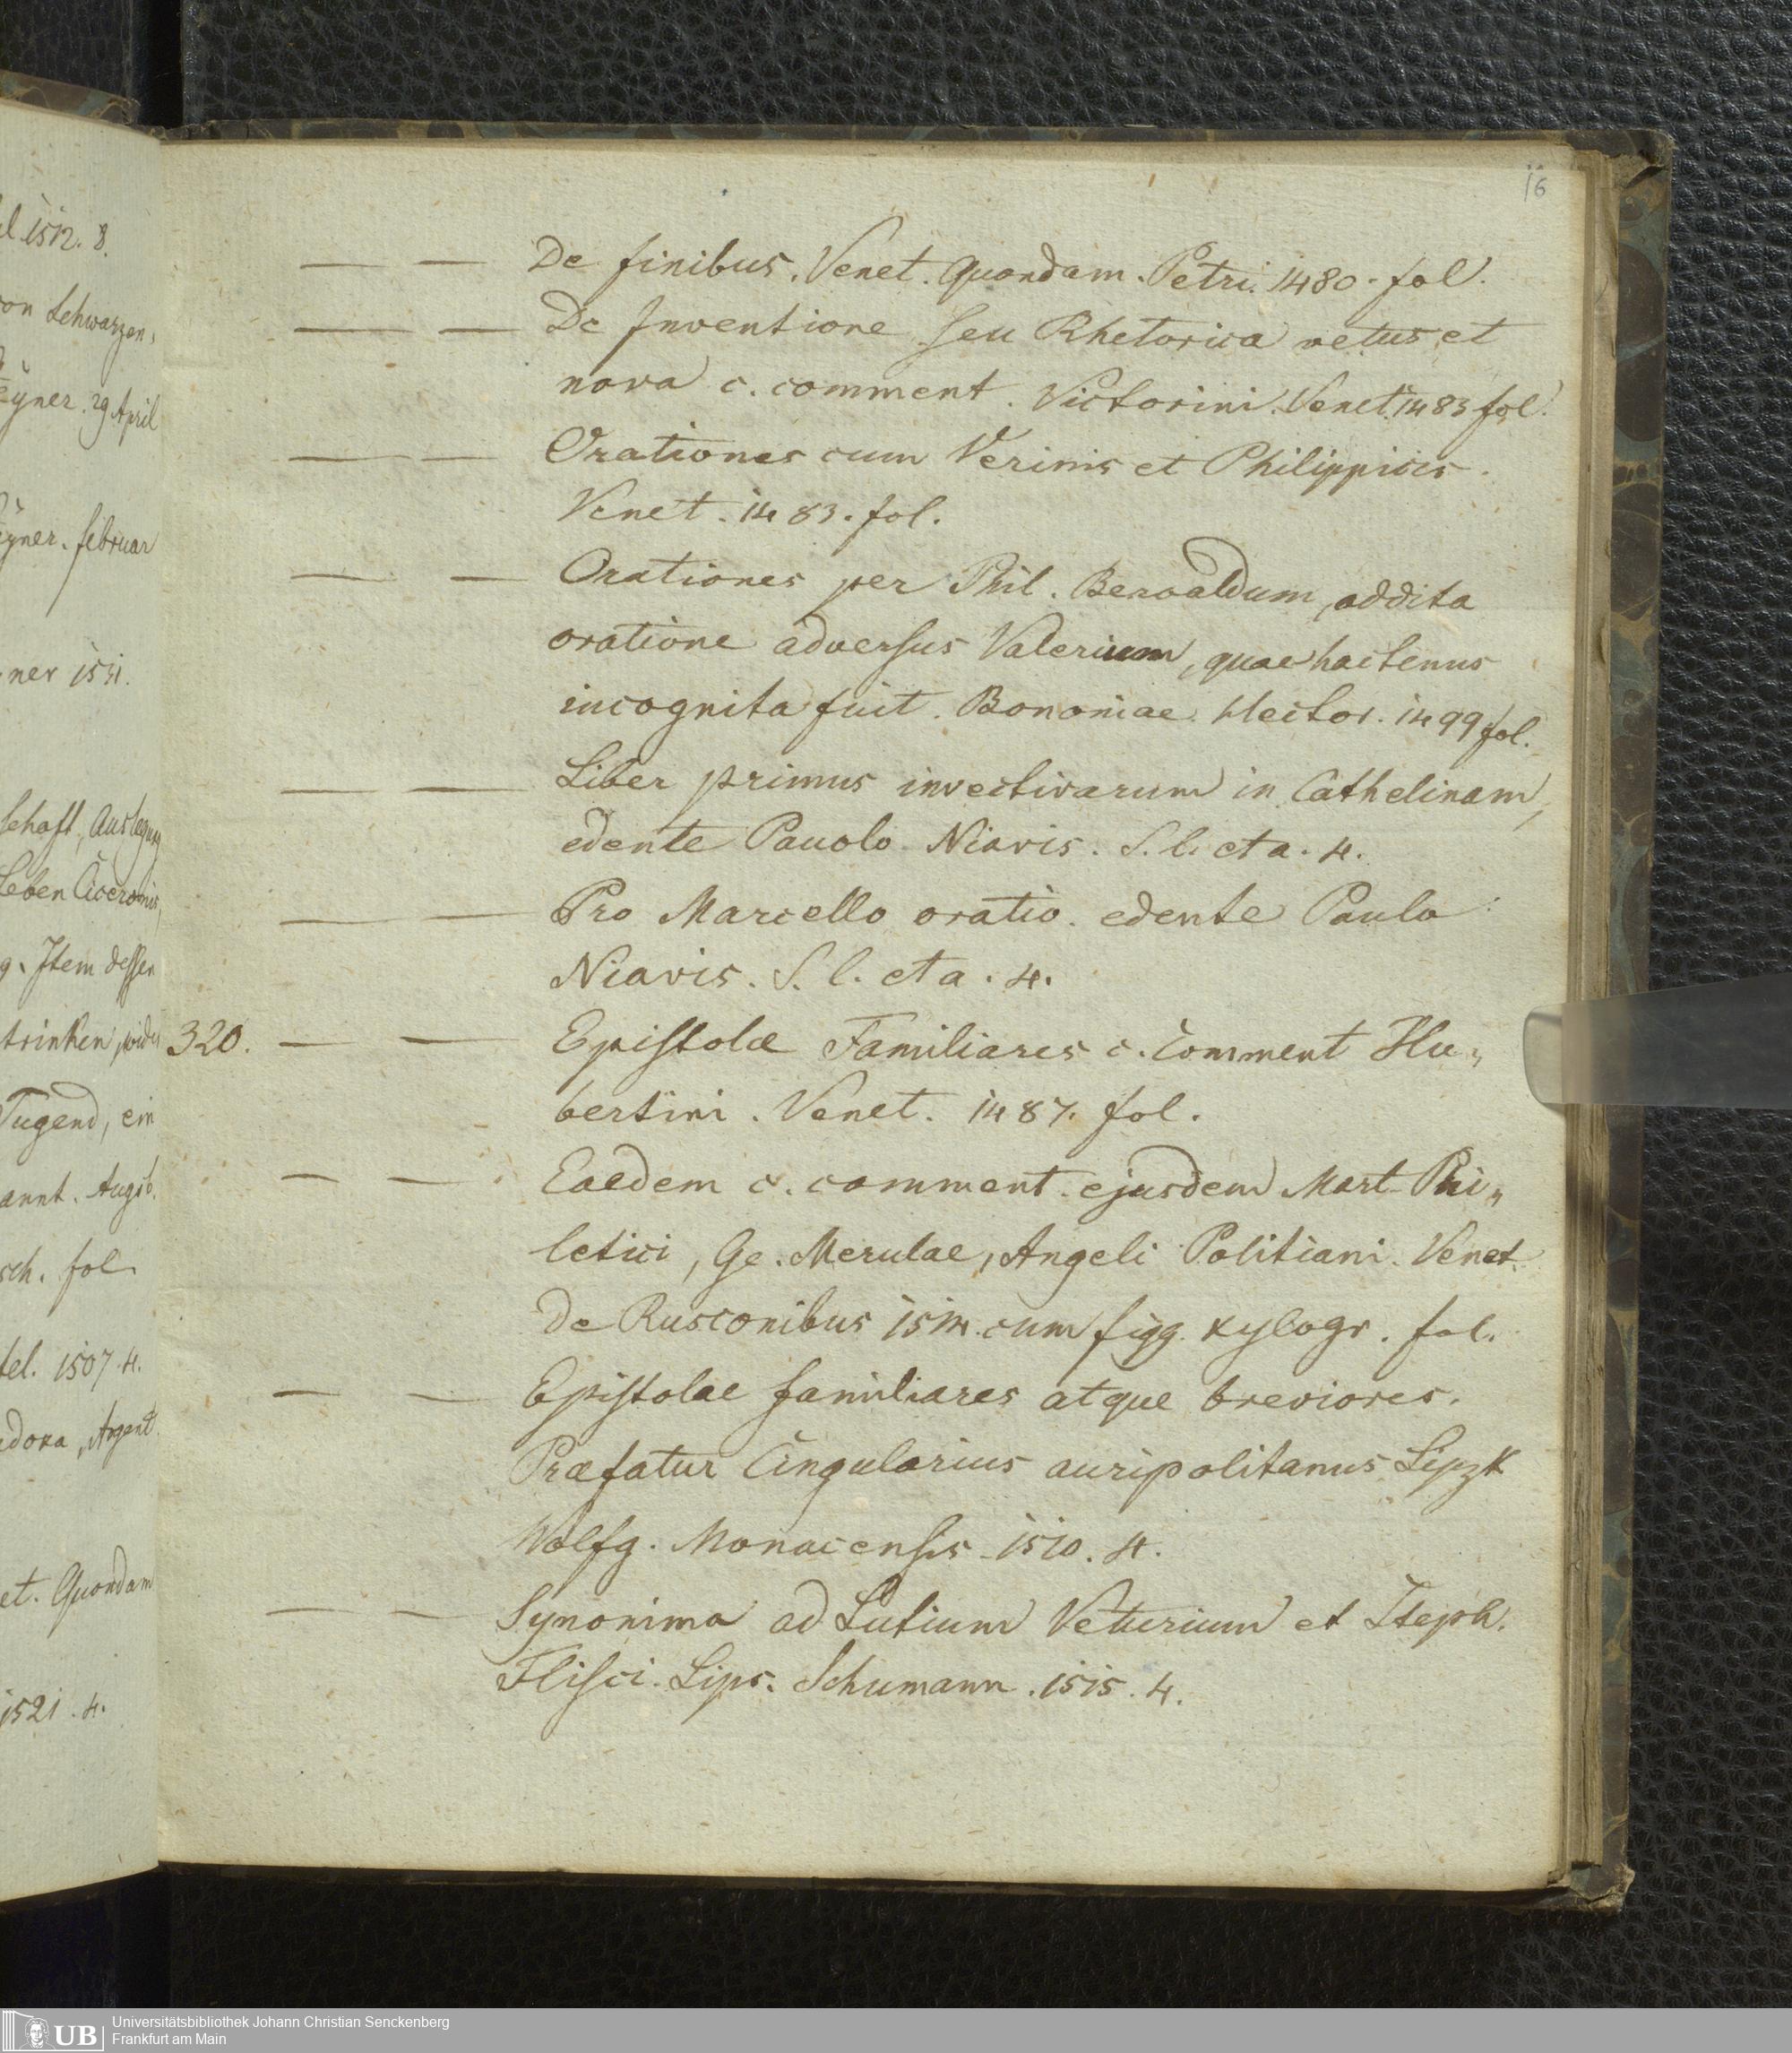 l. 1512. 8.
von Schwarzen,
eyner. 29 April
eyner. februar
ner 1531.
schaft, Auslegung
Leben Ciceronis,
g. Item dessen
trinken, wider
Tugend, ein
annt. Augsb.
sch. fol.
tel. 1507. 4.
edoxa, Argent.
et. Quondam
1521. 4.
16
— — De finibus. Venet. quondam Petri. 1480. fol.
— — De Inventione seu Rhetorica vetus et
nova c. comment. Victorini. Venet. 1483 fol.
— — Orationes cum Verinis et Philippicis.
Venet. 1483. fol.
— — Orationes per Phil. Beroaldum, addita
oratione adversus Valerium, quae hactenus
incognita fuit. Bononiae. Hector. 1499 fol.
— — Liber primus invectivarum in Cathelinam,
edente Pauolo Niavis. S. l. et a. 4.
— — Pro Marcello oratio. edente Paulo
Niavis. S. l. et a. 4.
320. — — Epistolæ Familiares c. comment Hu„
bertini. Venet. 1487. fol.
— — Eaedem c. comment. ejusdem Mart. Phi„
letici, Ge. Merulae, Angeli Politiani. Venet.
de Rusconibus cum figg. xylogr. fol.
— — Epistolae familiares atque breviores.
Præfatur Cingularius auripolitanus Lipzk
Wolfg. Monacensis. 1510. 4.
— — Synonima ad Lutium Vetturium et Steph.
Flisci. Lips. Schumann. 1515. 4.
UB
Universitätsbibliothek Johann Christian Senckenberg
Frankfurt am Main